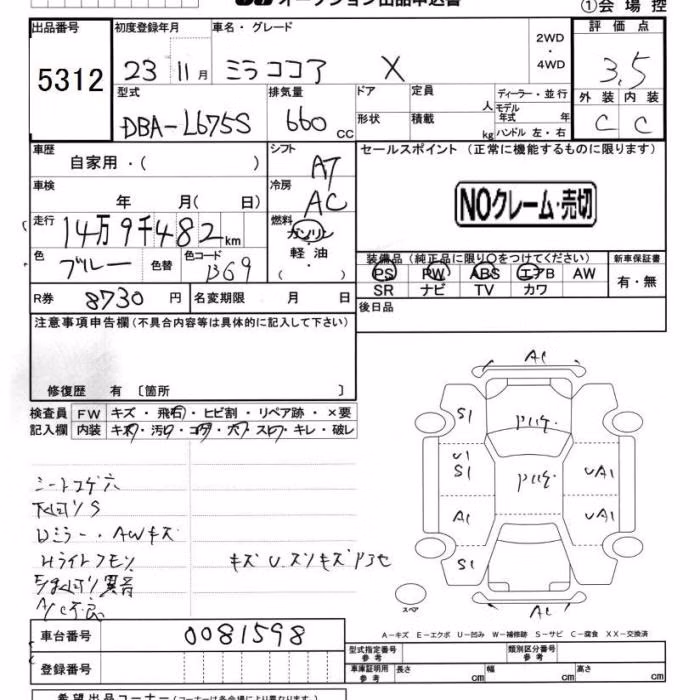 オークション出品申込書
①会場控
出品番号
5312
初度登録年月
23 11月
車名・グレード
ミラココア X
2WD
・
4WD
評価点
3.5
外装 内装
C C
型式
DBA-L675S
排気量
660 CC
ドア
形状
定員
人
積載
kg
ディーラー・並行
モデル年式 年
ハンドル 左・右
車歴
自家用・( )
シフト
AT
セールスポイント (正常に機能するものに限ります)
NOクレーム・売切
車検
年 月( 日)
冷房
AC
走行
14万9千482km
燃料
ガソリン
軽油
( )
色
ブルー
色替
色コード
B69
装備品 (純正品に限り○をつけてください)
PS PW ABS エアB AW
SR ナビ TV カワ
新車保証書
有・無
R券 8730円
名変期限 月 日
後日品
注意事項申告欄 (不具合内容等は具体的に記入して下さい)
修復歴 有 〔箇所 〕
検査員記入欄
FW キズ・飛石・ヒビ割・リペア跡・×要
内装 キズ・汚れ・コゲ・穴・スレ・キレ・破レ
シートコゲ穴
下回りS
Dミラー・AWキズ
Hライトクモリ
キズU.スリキズ
A/C不良
A1
S1
U1
S1
UA1
A1
UA1
S1
S1
A1
スペア
A-キズ E-エクボ U-凹み W-補修跡 S-サビ C-腐食 XX-交換済
車台番号
0081598
登録番号
型式指定番号 参考
類別区分番号 参考
車庫証明用 参考
長さ cm
幅 cm
高さ cm
希望出品コーナー (コーナーは各会場により異なります)